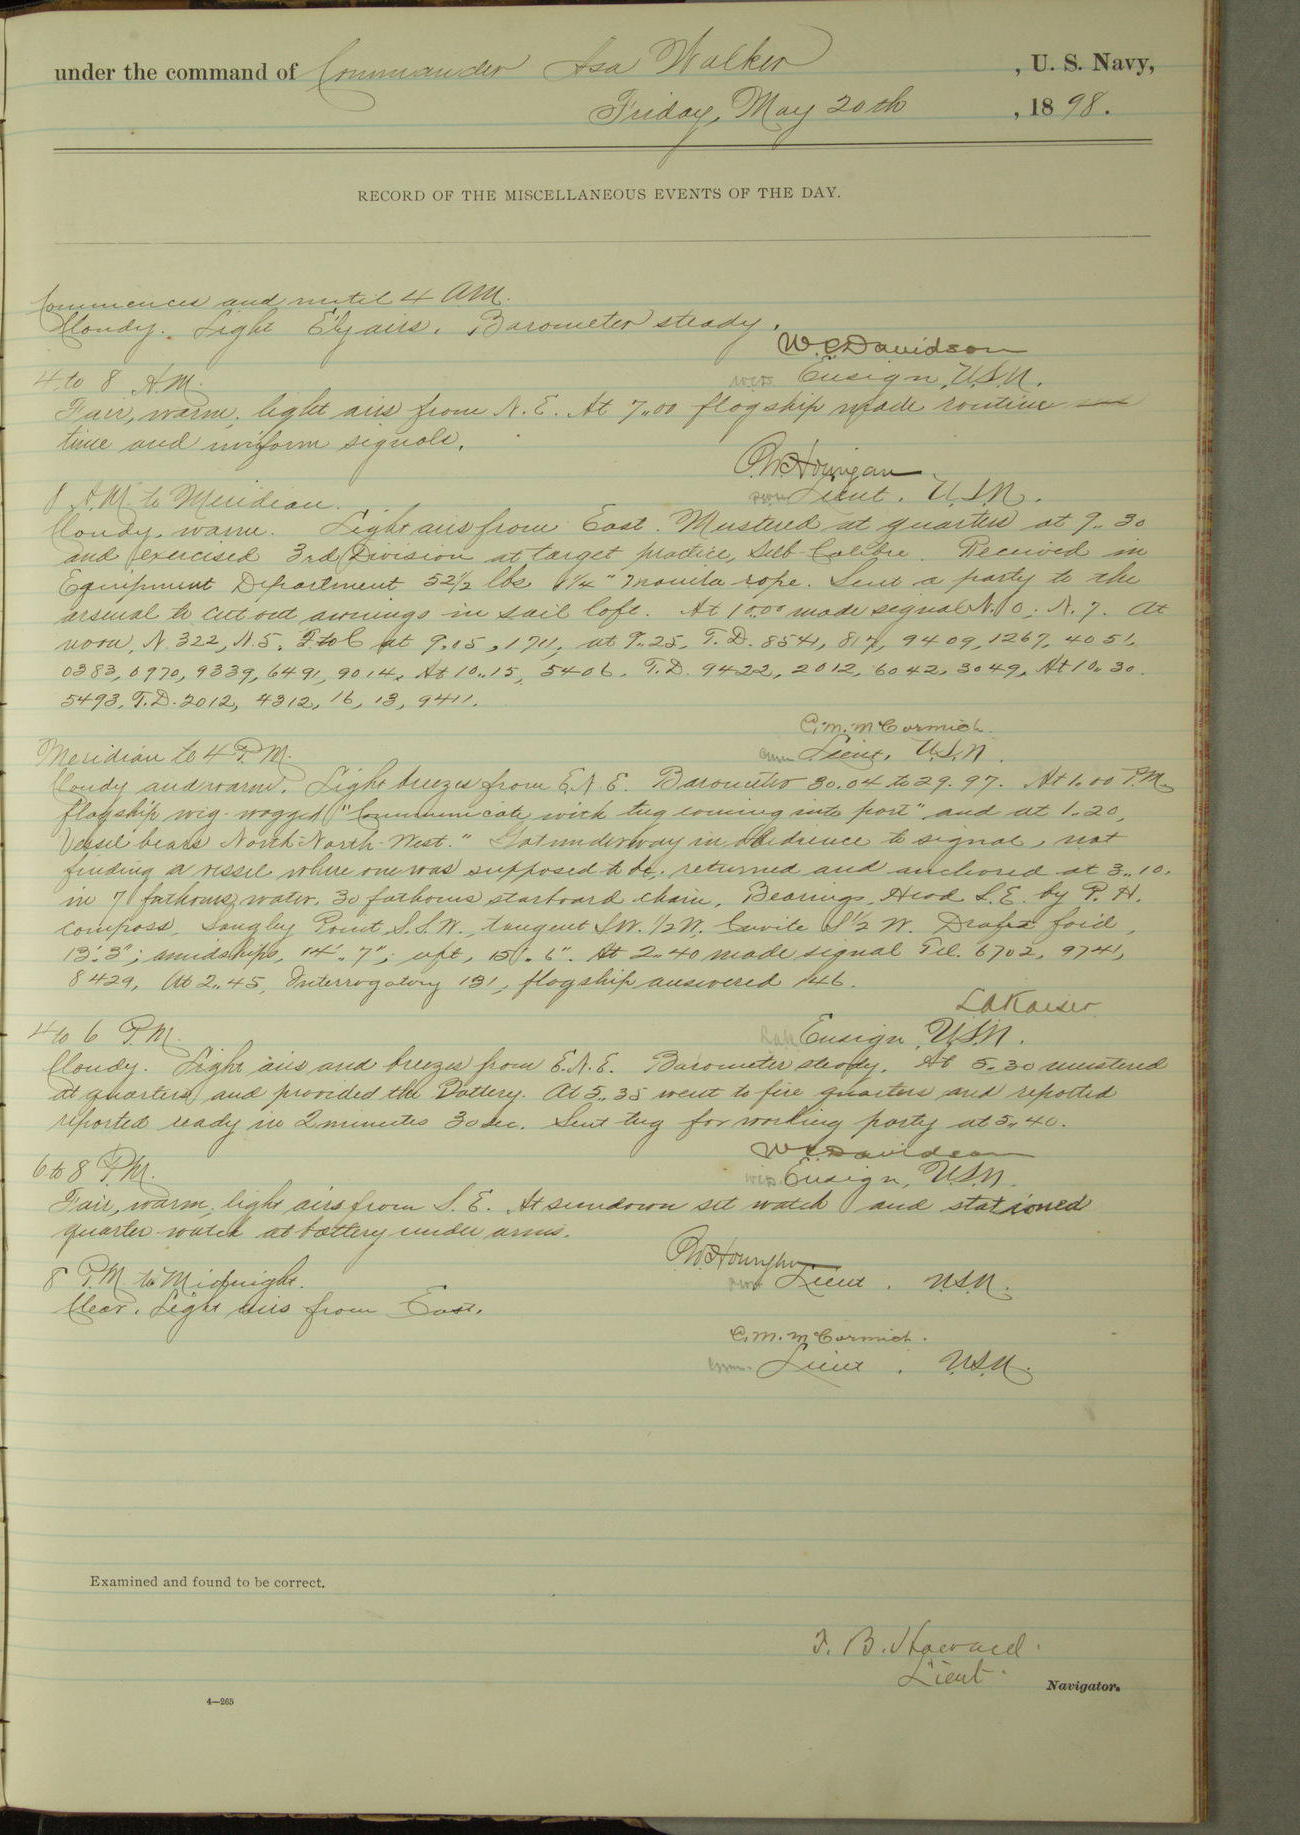 under the command of Commander Asa Walker, U. S. Navy,
Friday, May 20th, 1898.
RECORD OF THE MISCELLANEOUS EVENTS OF THE DAY.
Commences and until 4 A.M.
Cloudy. Light E'ly airs. Barometer steady.
W. C. Davidson
Ensign, U.S.N.
4 to 8 A.M.
Fair, warm, light airs from N.E. At 7.00 flagship made routine
time and uniform signals.
P. W. Hourigan
Lieut. U.S.N.
8 A.M. to Meridian.
Cloudy, warm. Light airs from East. Mustered at quarters at 9.30
and exercised 3rd Division at target practice, Sub-Calibre. Received in
Equipment Department 52 1/2 lbs 1/4" manila rope. Sent a party to the
arsenal to cut out awnings in sail loft. At 10.00 made signal N.O; N.7. At
noon, N.322, N.5. F. to C at 9.15, 1711, at 9.25, T.D. 8541, 817, 9409, 1267, 4051,
0383, 0970, 9339, 6491, 9014. At 10.15, 5406. T.D. 9422, 2012, 6042, 3049. At 10.30.
5493, T.D. 2012, 4312, 16, 13, 9411.
C. M. McCormick.
Lieut, U.S.N.
Meridian to 4 P.M.
Cloudy and warm. Light breezes from E.N.E. Barometer 30.04 to 29.97. At 1.00 P.M.
flagship wig-wagged "Communicate with tug coming into port" and at 1.20,
"Vessel bears North-North-West." Got underway in obedience to signal, not
finding a vessel where one was supposed to be, returned and anchored at 3.10.
in 7 fathoms water, 30 fathoms starboard chain. Bearings, Head S.E. by P.H.
compass, Sangley Point S.S.W., tangent S.W. 1/2 W. Cavite S 1/2 W. Draft for'd,
13'.3"; amidships, 14'.7"; aft, 15'.6". At 2.40 made signal Tel. 6702, 9741,
8429. At 2.45, Interrogatory 131, flagship answered 146.
L A Kaiser
Ensign, U.S.N.
4 to 6 P.M.
Cloudy. Light airs and breezes from E.N.E. Barometer steady. At 5.30 mustered
at quarters and provided the Battery. At 5.35 went to fire quarters and reported
reported ready in 2 minutes 30 sec. Sent tug for working party at 5.40.
W C Davidson
Ensign, U.S.N.
6 to 8 P.M.
Fair, warm, light airs from S.E. At sundown set watch and stationed
quarter watch at battery under arms.
P. W. Hourigan
Lieut. U.S.N.
8 P.M. to Midnight.
Clear. Light airs from East.
C. M. McCormick.
Lieut. U.S.N.
Examined and found to be correct.
T. B. Howard.
Lieut.
Navigator.
4—265